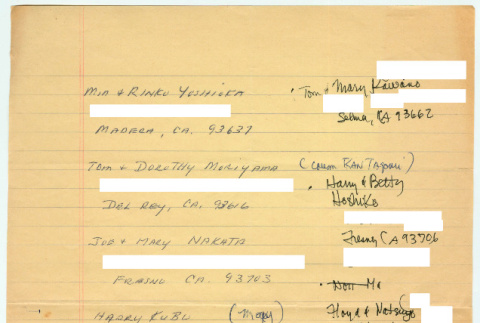 MIN & RINKO YOSHIOKA
MADERA, CA. 93637
TOM & DOROTHY MORIYAMA
DEL REY, CA. 93616
JOE & MARY NAKATA
FRESNO CA. 93703
HARRY KUBO (Mary)
Tom & Mary Kawano
Selma, CA 93662
(cousin RAN
Harry & Betty
Hoshiko
Fresno, CA 93706
Floyd &